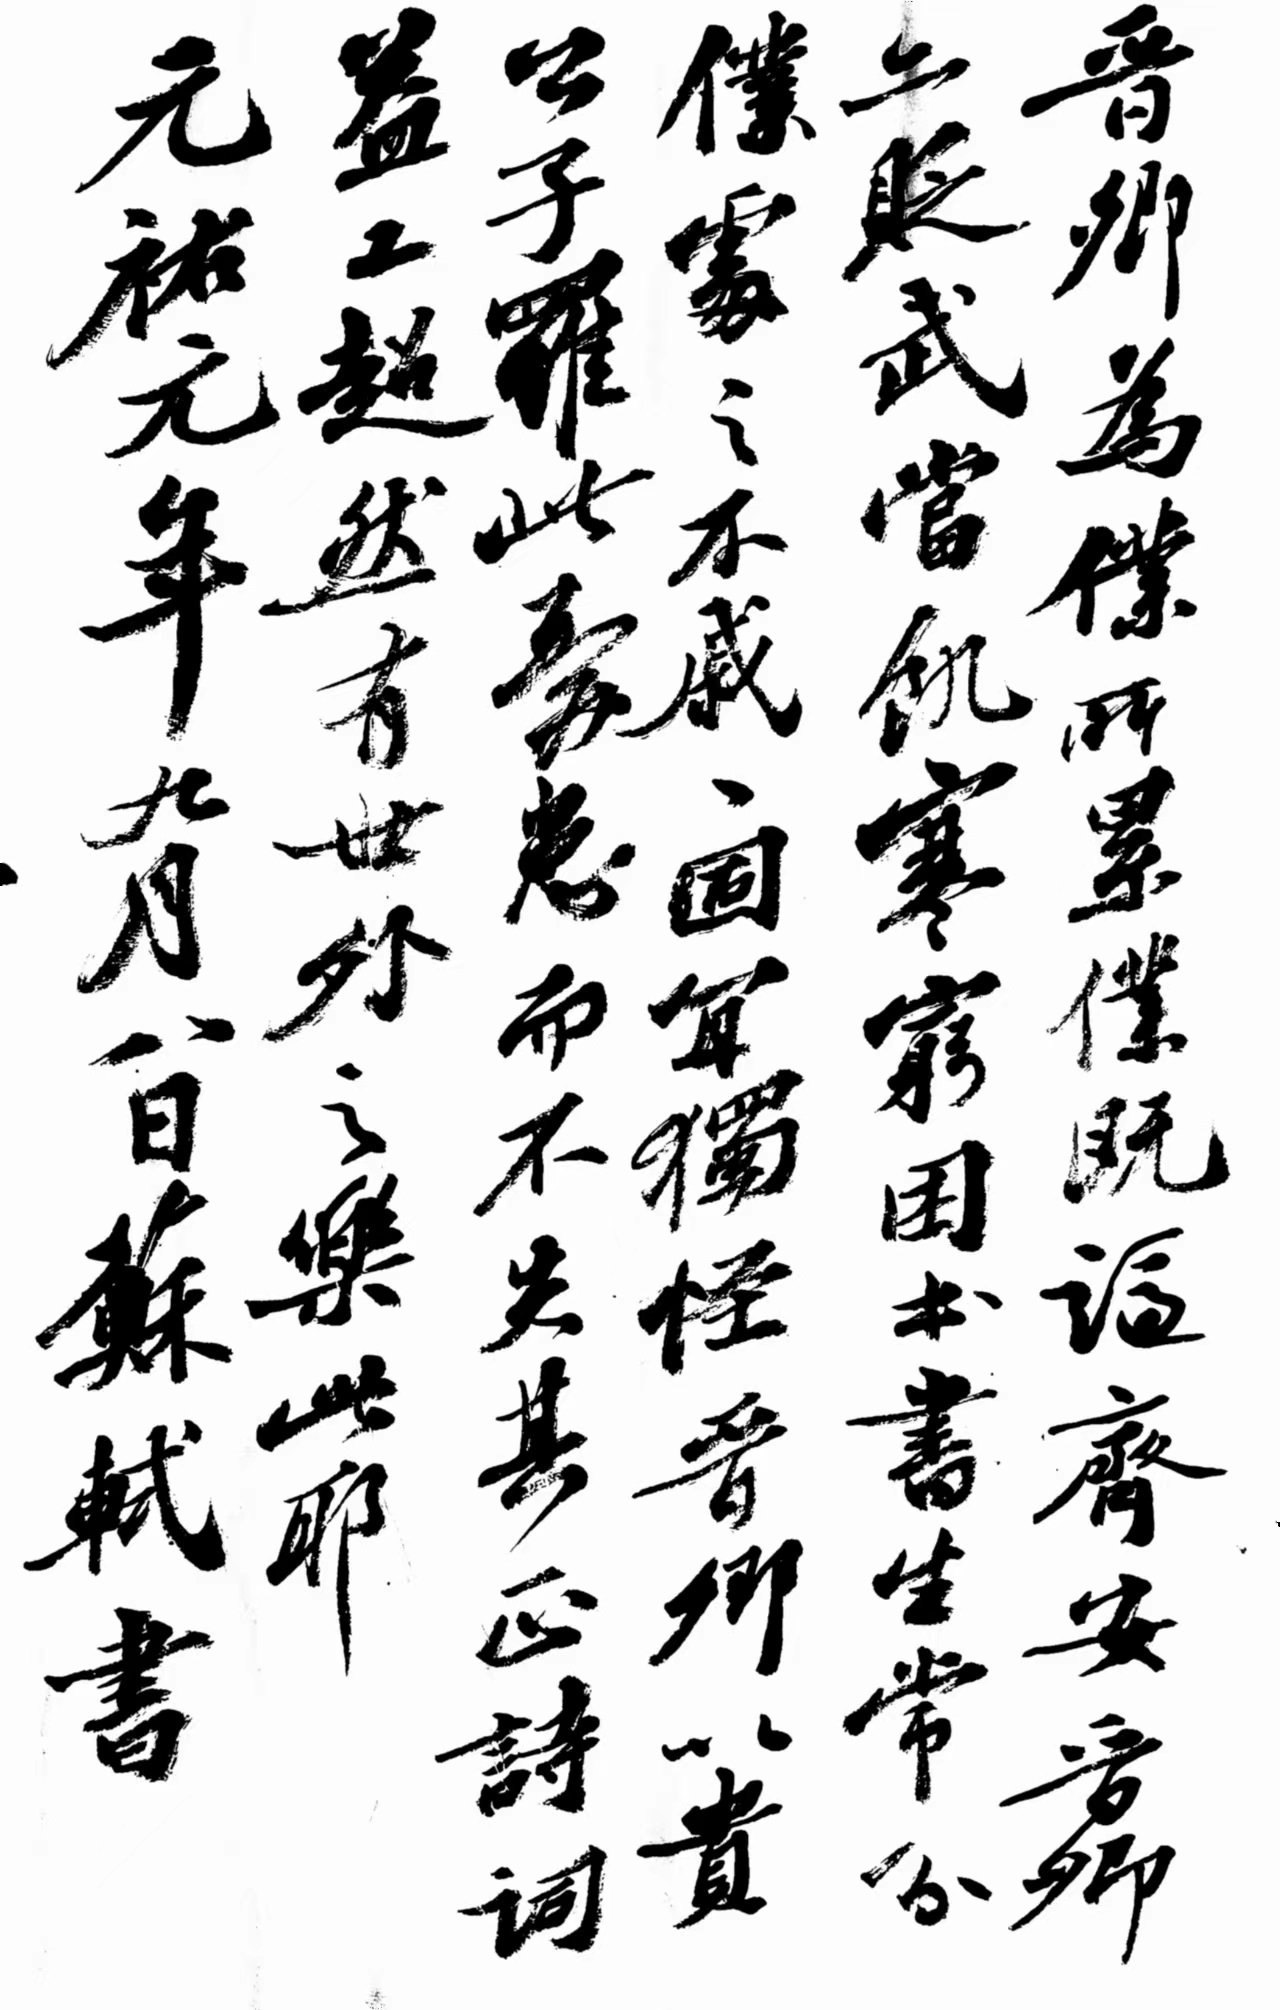 晉卿為僕所累僕既謫齊安晉卿
亦貶武當飢寒窮困本書生常分
僕處之不戚戚固宜獨怪晉卿以貴
公子罹此憂患而不失其正詩詞
益工超然有世外之樂此耶
元祐元年九月八日蘇軾書